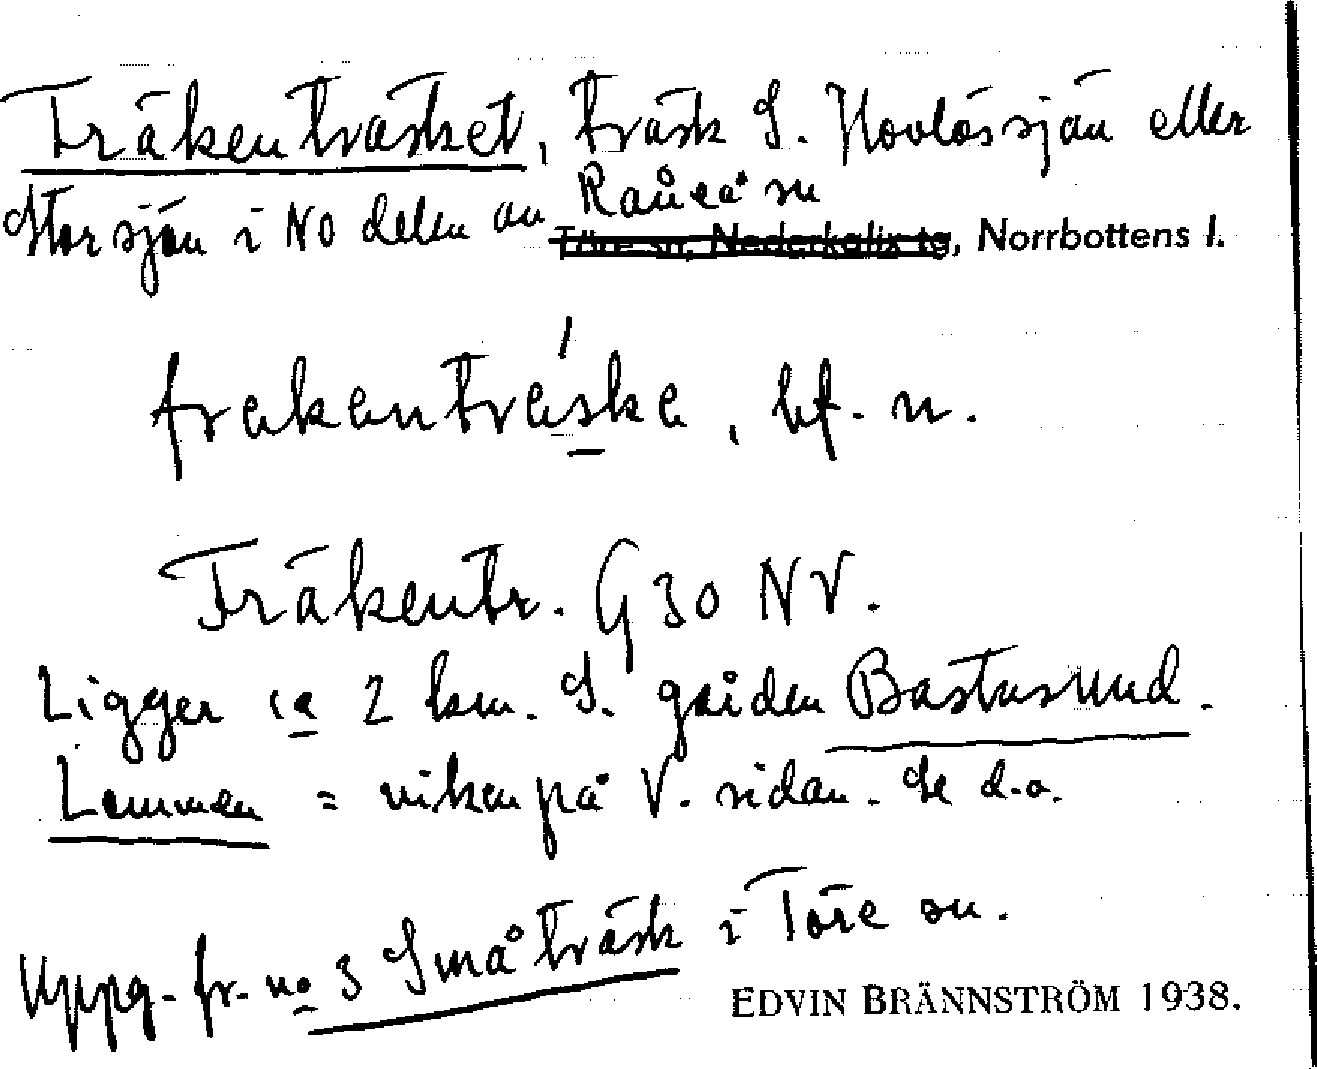 Fräkenträsket, träsk S. Hovlössjön eller
Storsjön i NO delen av Råneå sn
Töre sn, Nederkalix tg, Norrbottens l.
frakantrá̱ska, bf. n.
Fräkentr. G 30 NV.
Ligger ca 2 km. S. gården Bastusund.
Lommen = viken på V. sidan. Se d.o.
Uppg. fr. no 3 Småträsk i Töre sn.
EDVIN BRÄNNSTRÖM 1938.